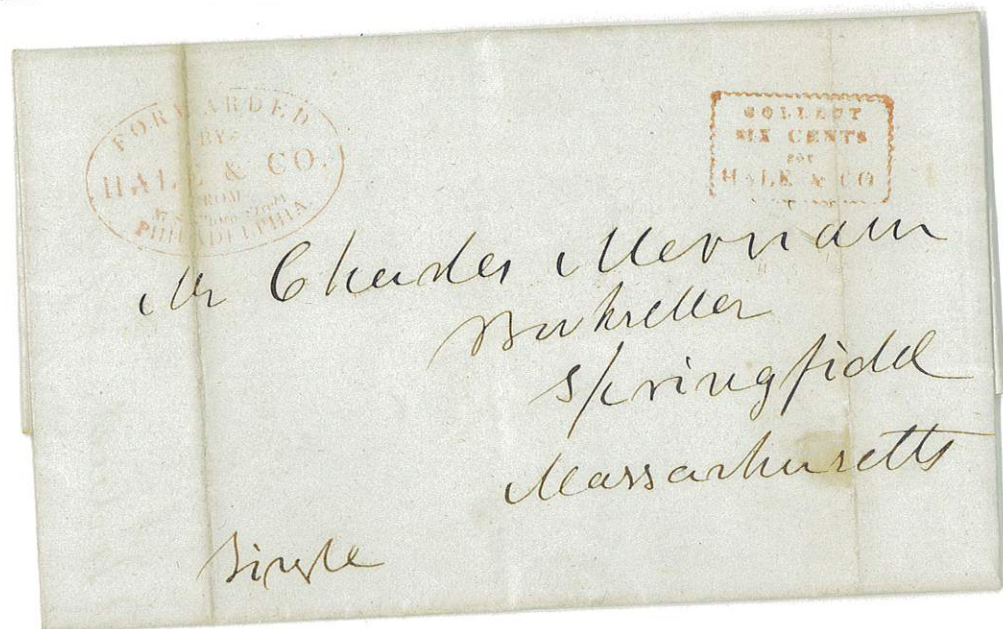 FORWARDED
BY
HALE & CO.
FROM
PHILADELPHIA
COLLECT
SIX CENTS
FOR
HALE & CO
Mr Charles Merriam
Bookseller
Springfield
Massachusetts
Single